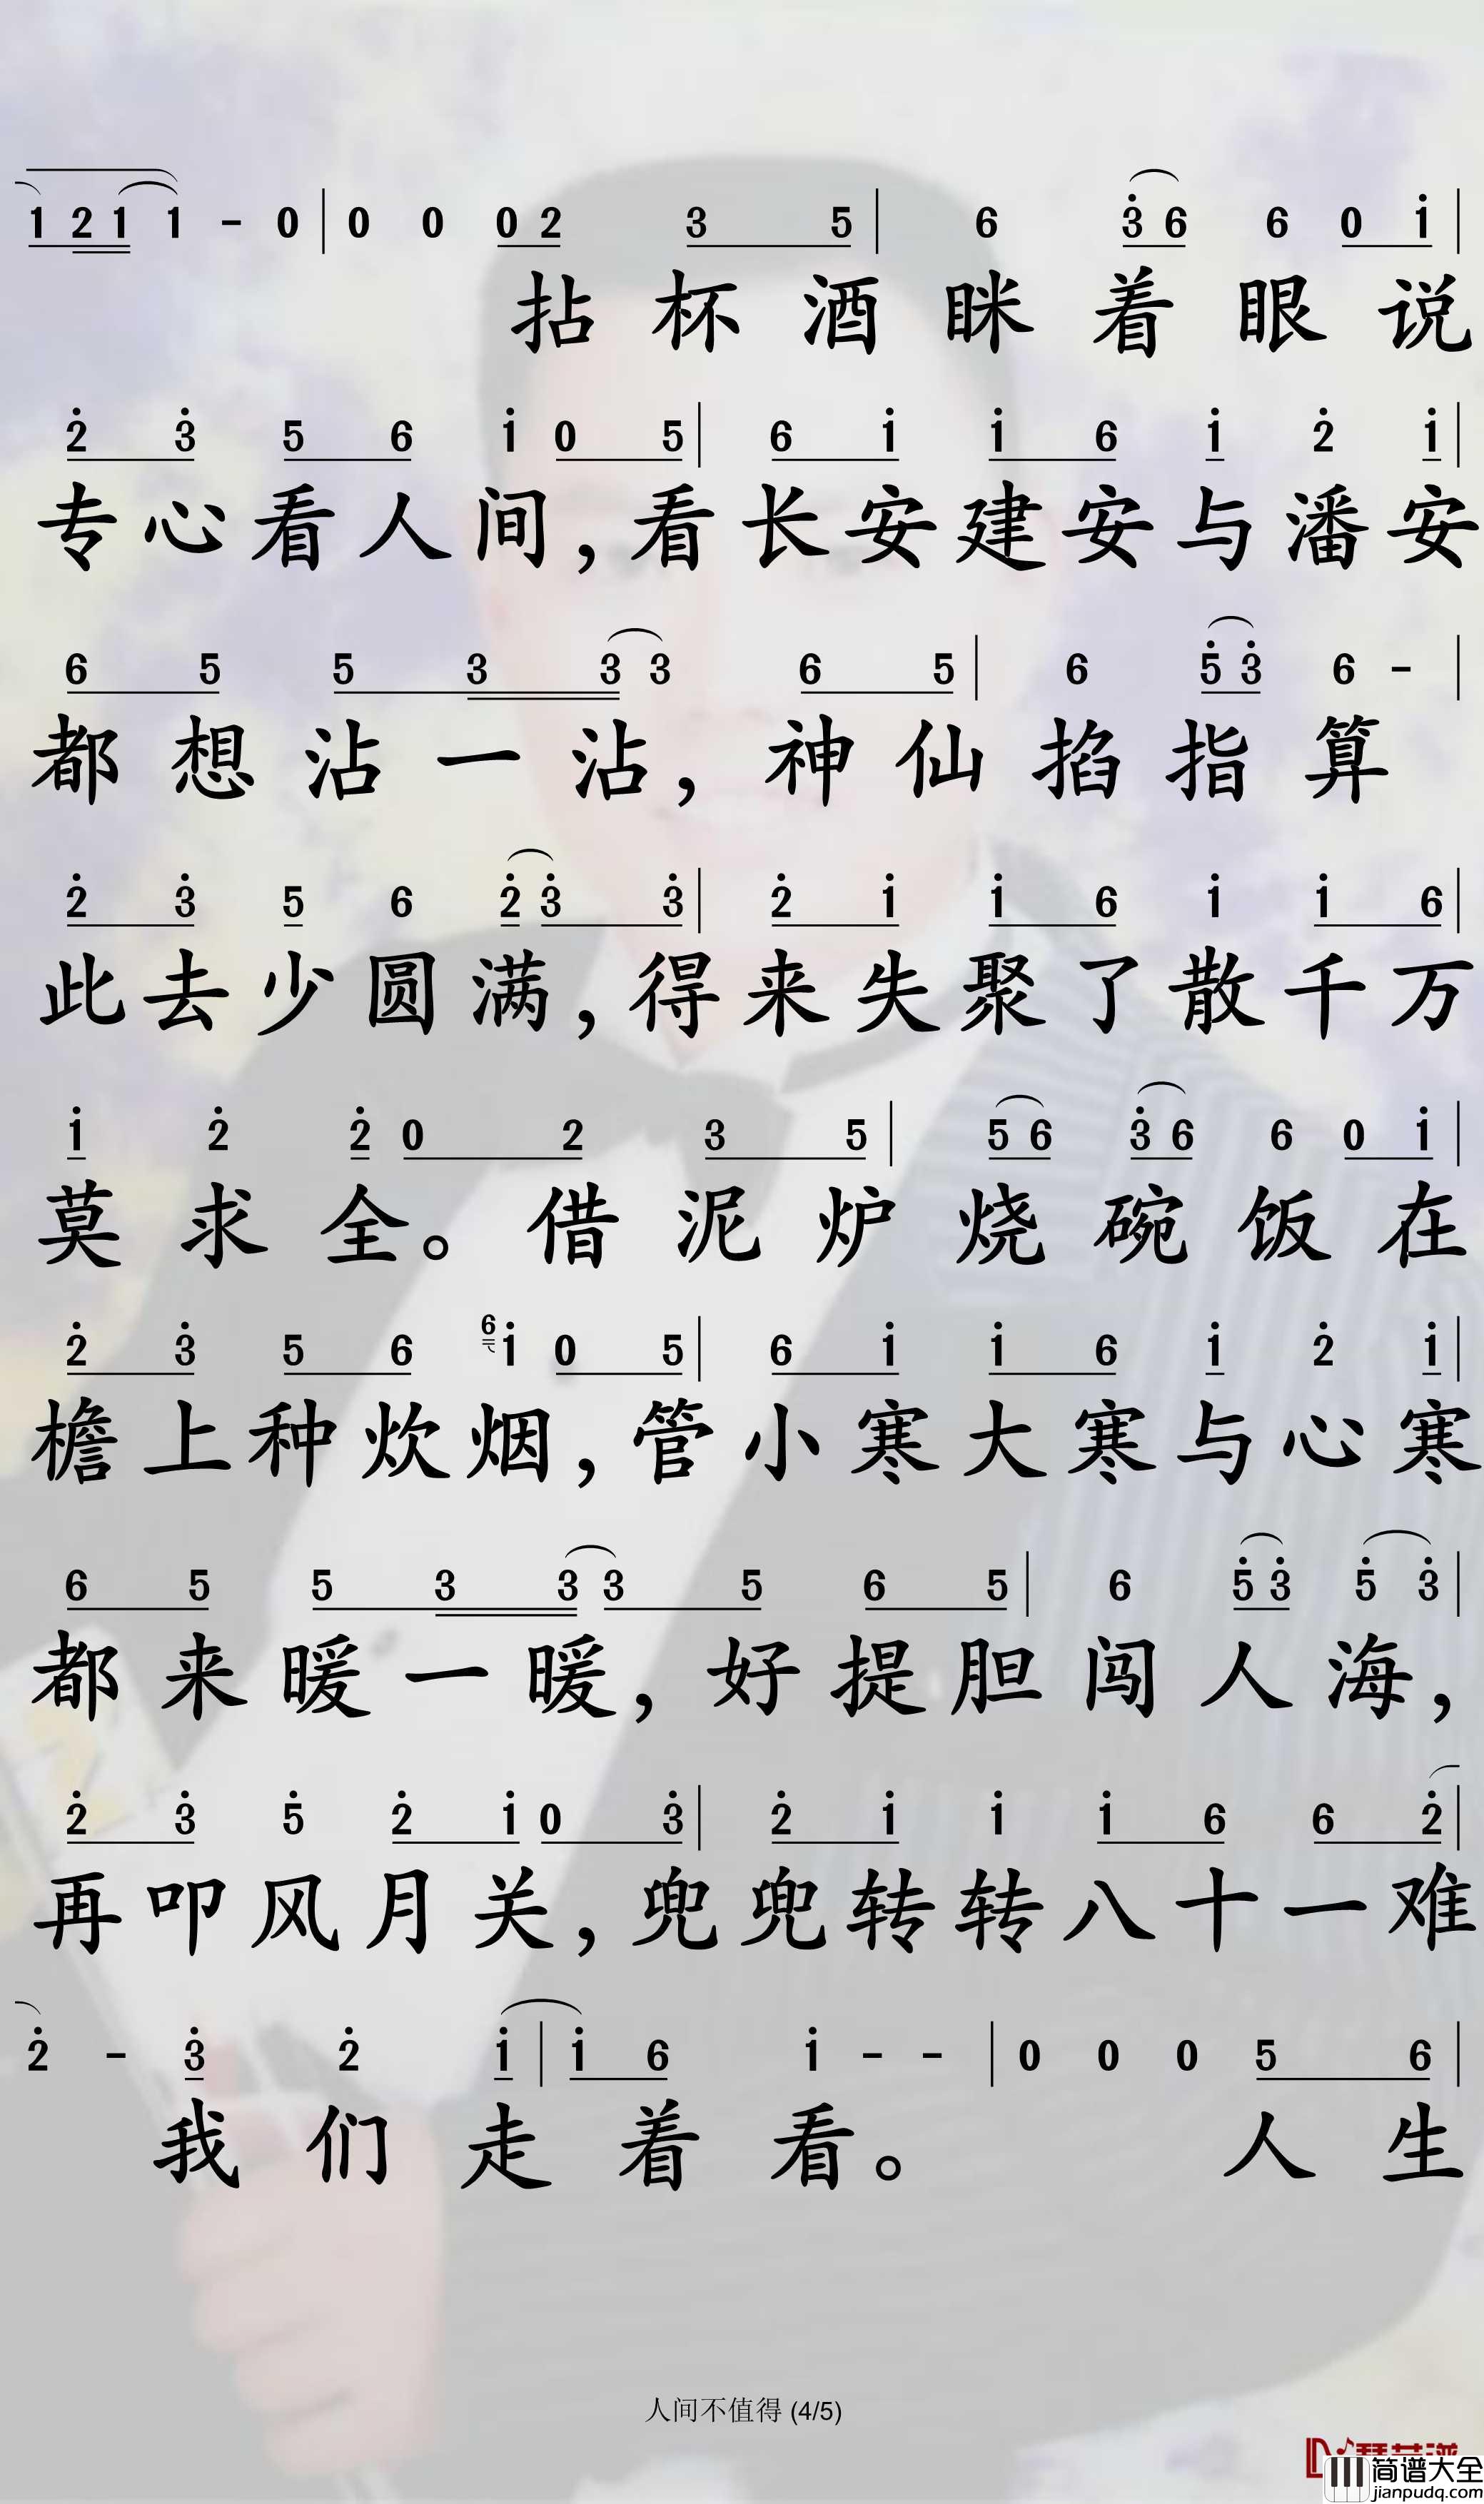 1 2 1 1 - 0 | 0 0 0 2 3 5 | 6 3̇ 6 6 0 1̇ |
拈杯酒眯着眼说
2̇ 3̇ 5 6 1̇ 0 5 | 6 1̇ 1̇ 6 1̇ 2̇ 1̇ |
专心看人间,看长安建安与潘安
6 5 5 3 3 3 6 5 | 6 5̇ 3̇ 6 - |
都想沾一沾,神仙掐指算
2̇ 3̇ 5̇ 6 2̇ 3̇ 3̇ | 2̇ 1̇ 1̇ 6 1̇ 1̇ 6 |
此去少圆满,得来失聚了散千万
1̇ 2̇ 2̇ 0 2 3 5 | 5 6 3̇ 6 6 0 1̇ |
莫求全。借泥炉烧碗饭在
2̇ 3̇ 5 6 6 1̇ 0 5 | 6 1̇ 1̇ 6 1̇ 2̇ 1̇ |
檐上种炊烟,管小寒大寒与心寒
6 5 5 3 3 3 5 6 5 | 6 5̇ 3̇ 5̇ 3̇ |
都来暖一暖,好提胆闯人海,
2̇ 3̇ 5̇ 2̇ 1̇ 0 3̇ | 2̇ 1̇ 1̇ 1̇ 6 6 2̇ |
再叩风月关,兜兜转转八十一难
2̇ - 3̇ 2̇ 1̇ | 1̇ 6 1̇ - - | 0 0 0 5 6 |
我们走着看。人生
人间不值得 (4/5)
简谱大全
jianpudq.com